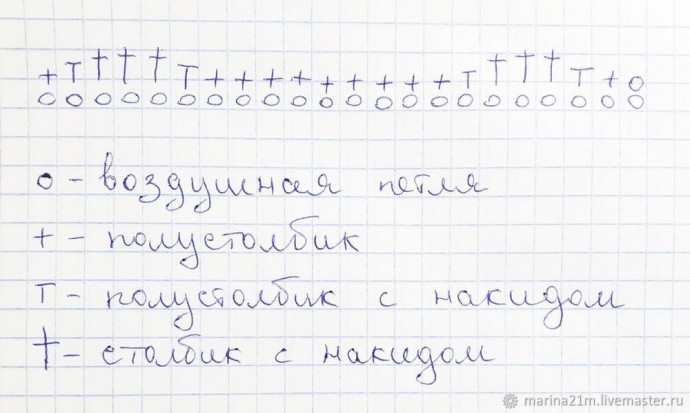 + т † † † т + + + + + + + + + т † † † т + о
о о о о о о о о о о о о о о о о о о о о о о
о - воздушная петля
+ - полустолбик
т - полустолбик с накидом
† - столбик с накидом
marina21m.livemaster.ru